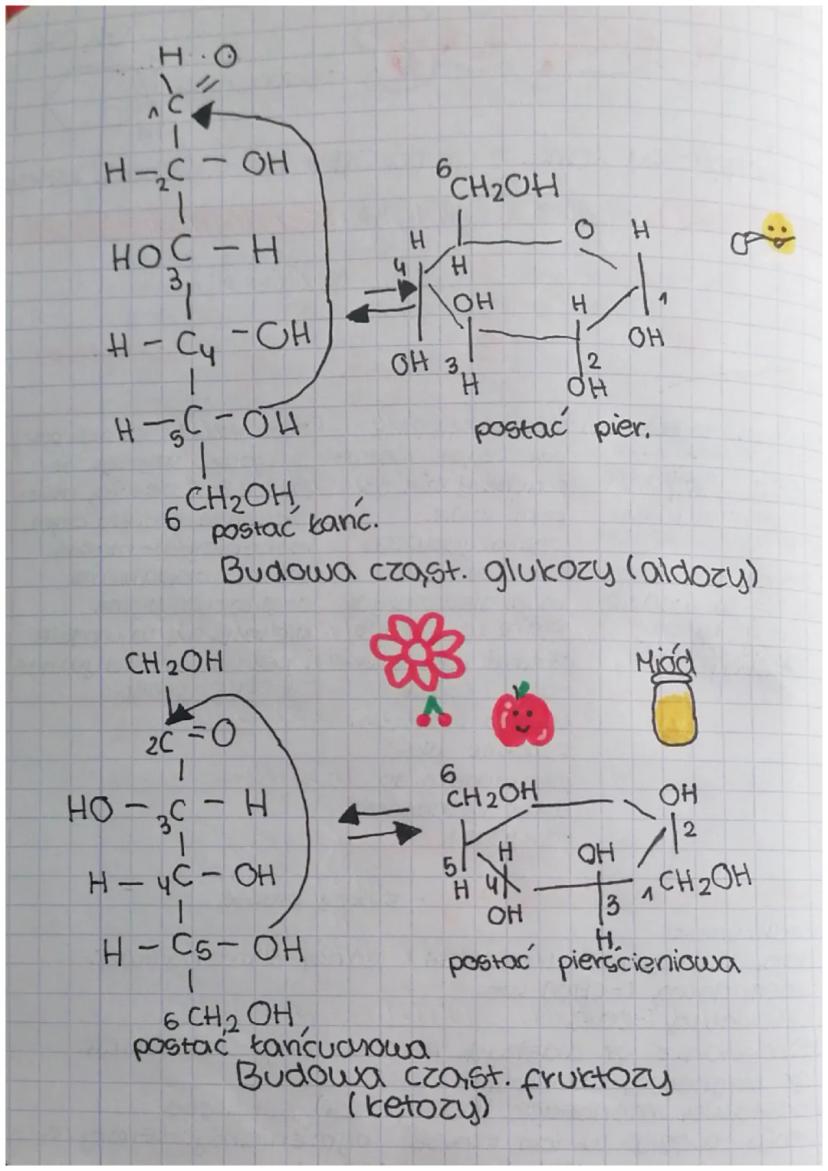 H O
1 C
H - 2C - OH
HO C - H
3
H - C4 - OH
H - 5C - OH
6 CH2OH
postać łańc.
6
CH2OH
H O H
4 H
OH H 1
OH 3 2 OH
H OH
postać pier.
Budowa cząst. glukozy (aldozy)
CH2OH
Miód
2C = O
HO - 3C - H
H - 4C - OH
H - C5 - OH
6 CH2OH
postać łańcuchowa
6
CH2OH OH
2
5 H OH
H 4 1 CH2OH
OH 3
H
postać pierścieniowa
Budowa cząst. fruktozy
(ketozy)